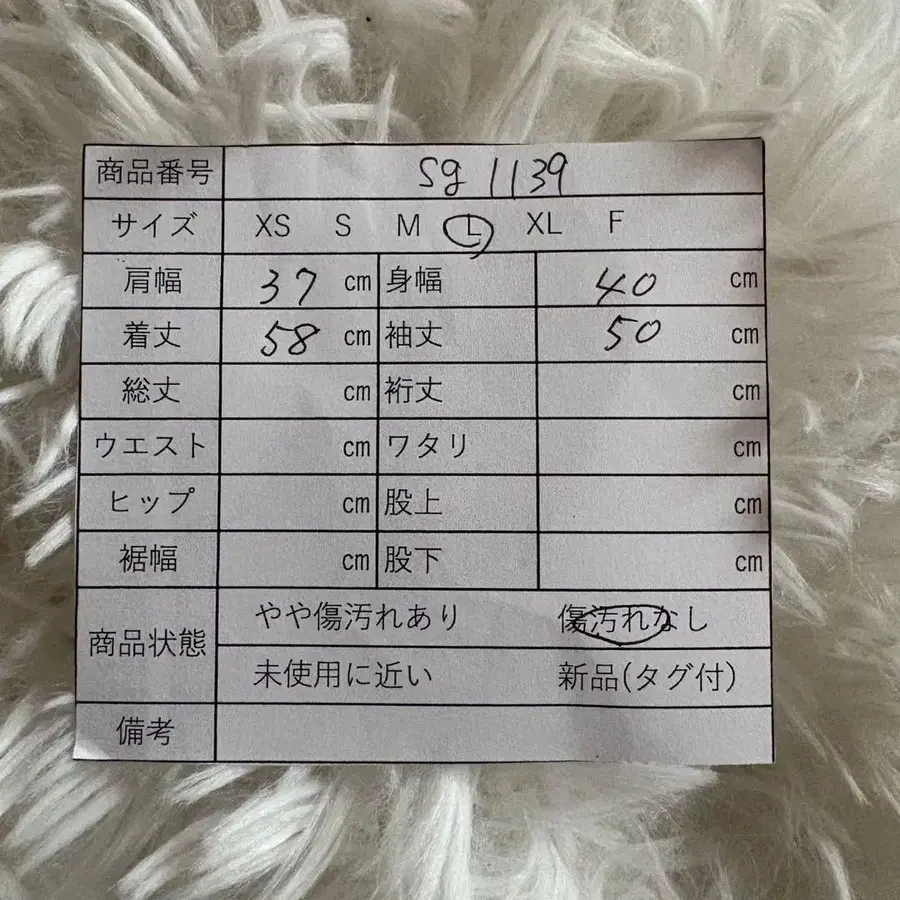 商品番号 sg 1139
サイズ XS S M L XL F
肩幅 37 cm 身幅 40 cm
着丈 58 cm 袖丈 50 cm
総丈 cm 裄丈 cm
ウエスト cm ワタリ cm
ヒップ cm 股上 cm
裾幅 cm 股下 cm
商品状態 やや傷汚れあり 傷汚れなし
未使用に近い 新品(タグ付)
備考